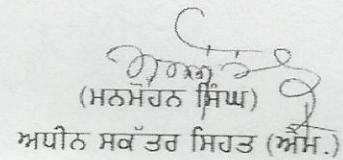 (ਮਨਮੋਹਨ ਸਿੰਘ)
ਅਧੀਨ ਸਕੱਤਰ ਸਿਹਤ (ਐਸ.)